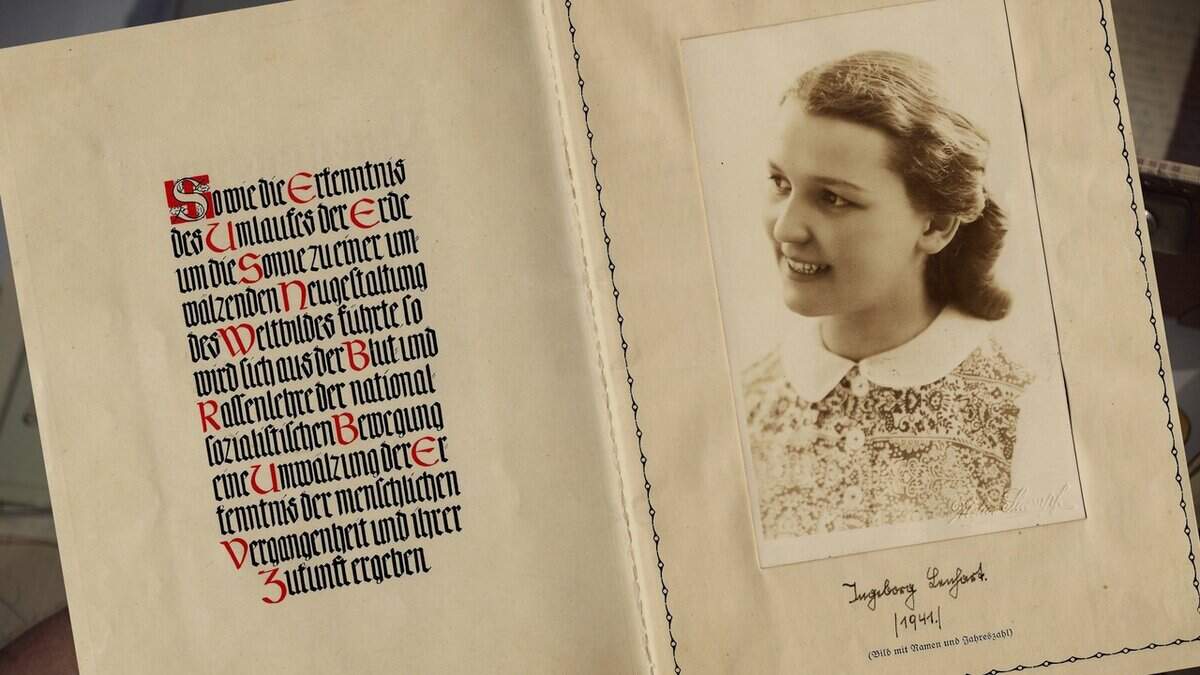 Sowie die Erkenntnis
des Umlaufes der Erde
um die Sonne zu einer um
walzenden Neugestaltung
des Weltbildes führte, so
wird sich aus der Blut und
Rassenlehre der national
sozialistischen Bewegung
eine Umwalzung der Er
kenntnis der menschlichen
Vergangenheit und ihrer
Zukunft ergeben
Ingeborg Lenhart.
/1941./
(Bild mit Namen und Jahreszahl)